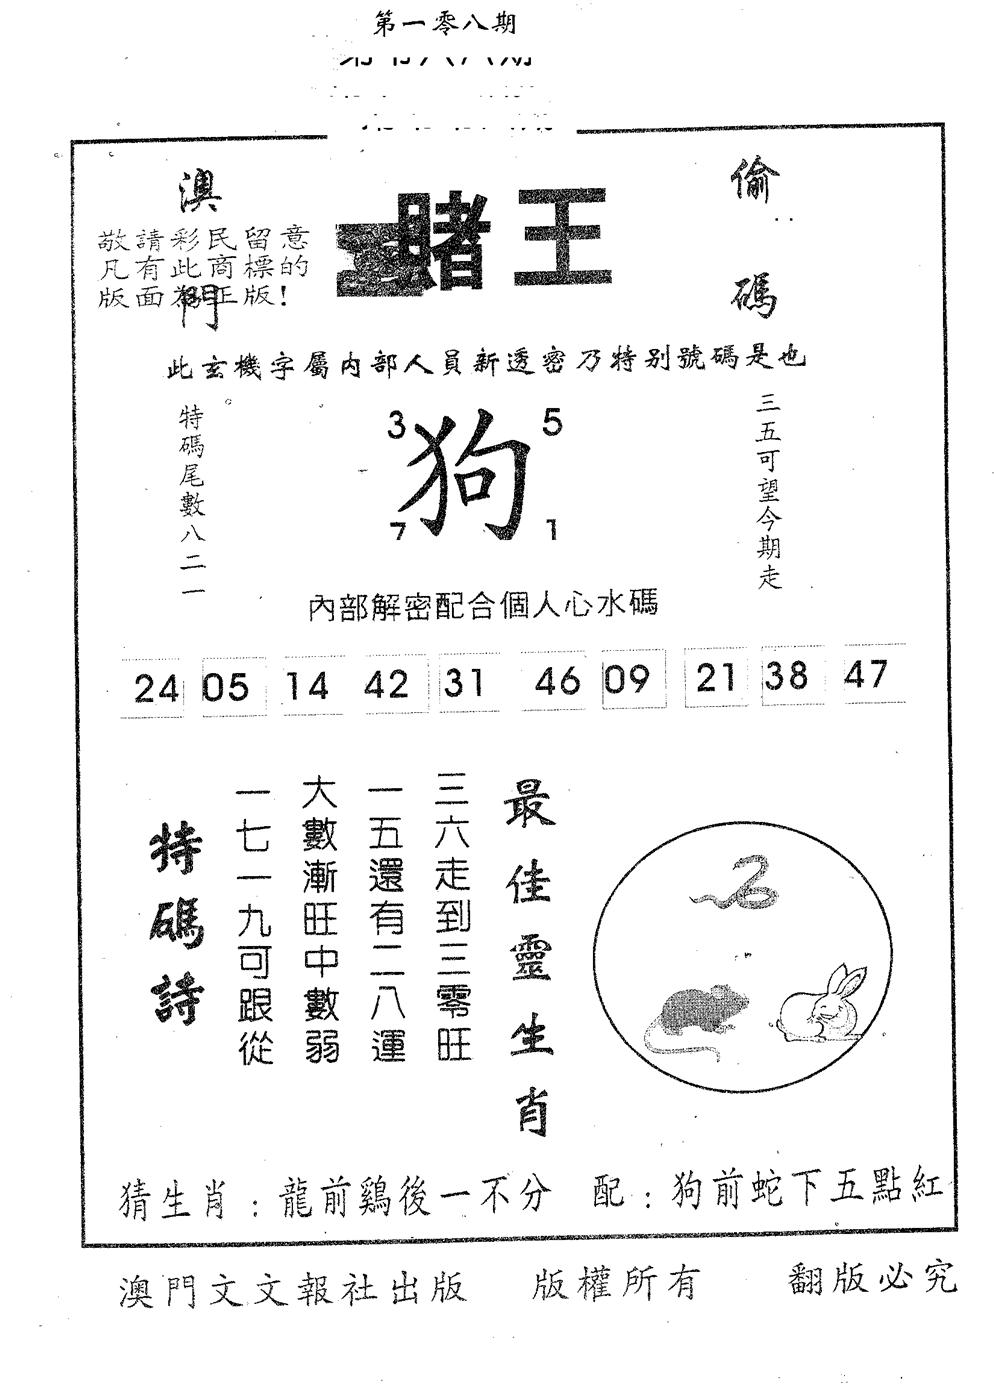 第一零八期
澳門
賭王
偷碼
敬請彩民留意
凡有此商標的
版面為正版！
此玄機字屬內部人員新透密乃特別號碼是也
特碼尾數八二一
3
5
狗
7
1
三五可望今期走
內部解密配合個人心水碼
24 05 14 42 31 46 09 21 38 47
最佳靈生肖
三六走到三零旺
一五還有二八運
大數漸旺中數弱
一七一九可跟從
特碼詩
猜生肖：龍前鷄後一不分 配：狗前蛇下五點紅
澳門文文報社出版 版權所有 翻版必究